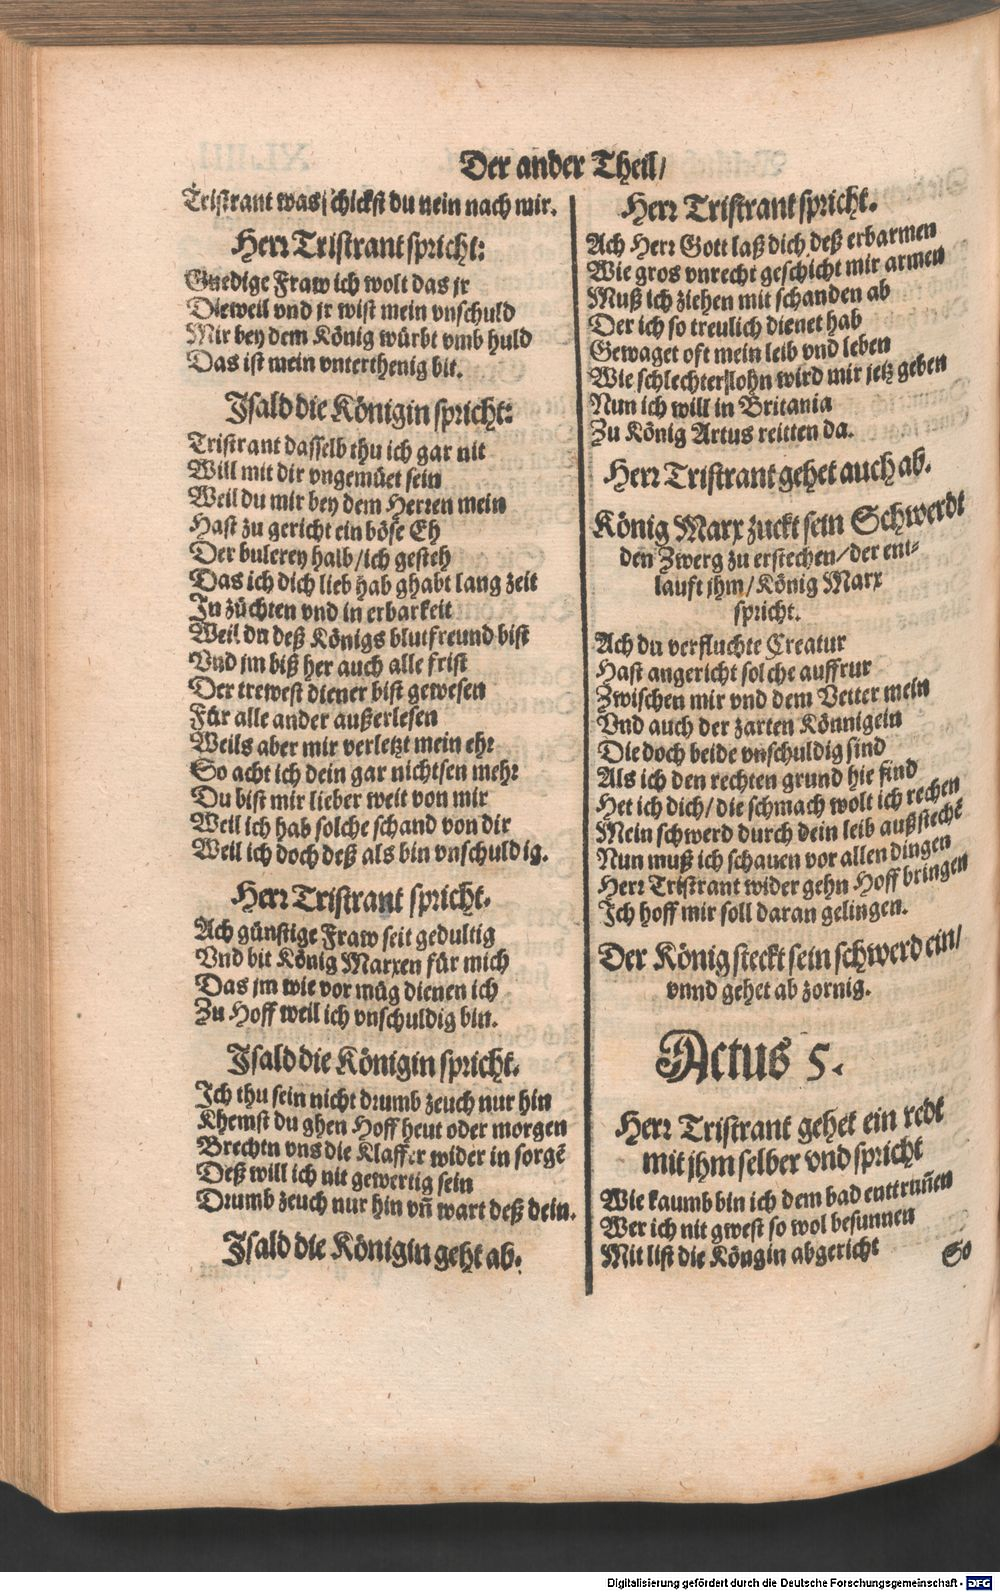 Der ander Theil/
Tristrant was schickst du nein nach mir.
Herr Tristrant spricht:
Gnedige Fraw ich wolt das jr
Dieweil vnd jr wist mein vnschuld
Mir bey dem König würbt vmb huld
Das ist mein vnterthenig bit.
Jsald die Königin spricht:
Tristrant dasselb thu ich gar nit
Will mit dir vngemüet sein
Weil du mir bey dem Herren mein
Hast zu gericht ein böse Eh
Der bulerey halb/ich gesteh
Das ich dich lieb hab ghabt lang zeit
In züchten vnd in erbarkeit
Weil du deß Königs blutfreund bist
Vnd jm biß her auch alle frist
Der trewest diener bist gewesen
Für alle ander außerlesen
Weils aber mir verletzt mein ehr
So acht ich dein gar nichtsen mehr
Du bist mir lieber weit von mir
Weil ich hab solche schand von dir
Weil ich doch deß als bin vnschuldig.
Herr Tristrant spricht.
Ach günstige Fraw seit gedultig
Vnd bit König Marxen für mich
Das jm wie vor müg dienen ich
Zu Hoff weil ich vnschuldig bin.
Jsald die Königin spricht.
Ich thu sein nicht drumb zeuch nur hin
Khemst du ghen Hoff heut oder morgen
Brechtn vns die Klaffer wider in sorgē
Deß will ich nit gewertig sein
Drumb zeuch nur hin vñ wart deß dein.
Jsald die Königin geht ab.
Herr Tristrant spricht.
Ach Herr Gott laß dich deß erbarmen
Wie gros vnrecht geschicht mir armen
Muß ich ziehen mit schanden ab
Der ich so treulich dienet hab
Gewaget oft mein leib vnd leben
Wie schlechter lohn wird mir jetz geben
Nun ich will in Britania
Zu König Artus reitten da.
Herr Tristrant gehet auch ab.
König Marx zuckt sein Schwerdt
den Zwerg zu erstechen/der ent-
lauft jhm/König Marx
spricht.
Ach du verfluchte Creatur
Hast angericht solche auffrur
Zwischen mir vnd dem Vetter mein
Vnd auch der zarten Könnigein
Die doch beide vnschuldig sind
Als ich den rechten grund hie find
Het ich dich/die schmach wolt ich rechen
Mein schwerd durch dein leib außstechē
Nun muß ich schauen vor allen dingen
Herr Tristrant wider gehn Hoff bringen
Ich hoff mir soll daran gelingen.
Der König steckt sein schwerd ein/
vnnd gehet ab zornig.
Actus 5.
Herr Tristrant gehet ein redt
mit jhm selber vnd spricht
Wie kaumb bin ich dem bad enttruñen
Wer ich nit gwest so wol besunnen
Mit list die Köngin abgericht
So
Digitalisierung gefördert durch die Deutsche Forschungsgemeinschaft - DFG